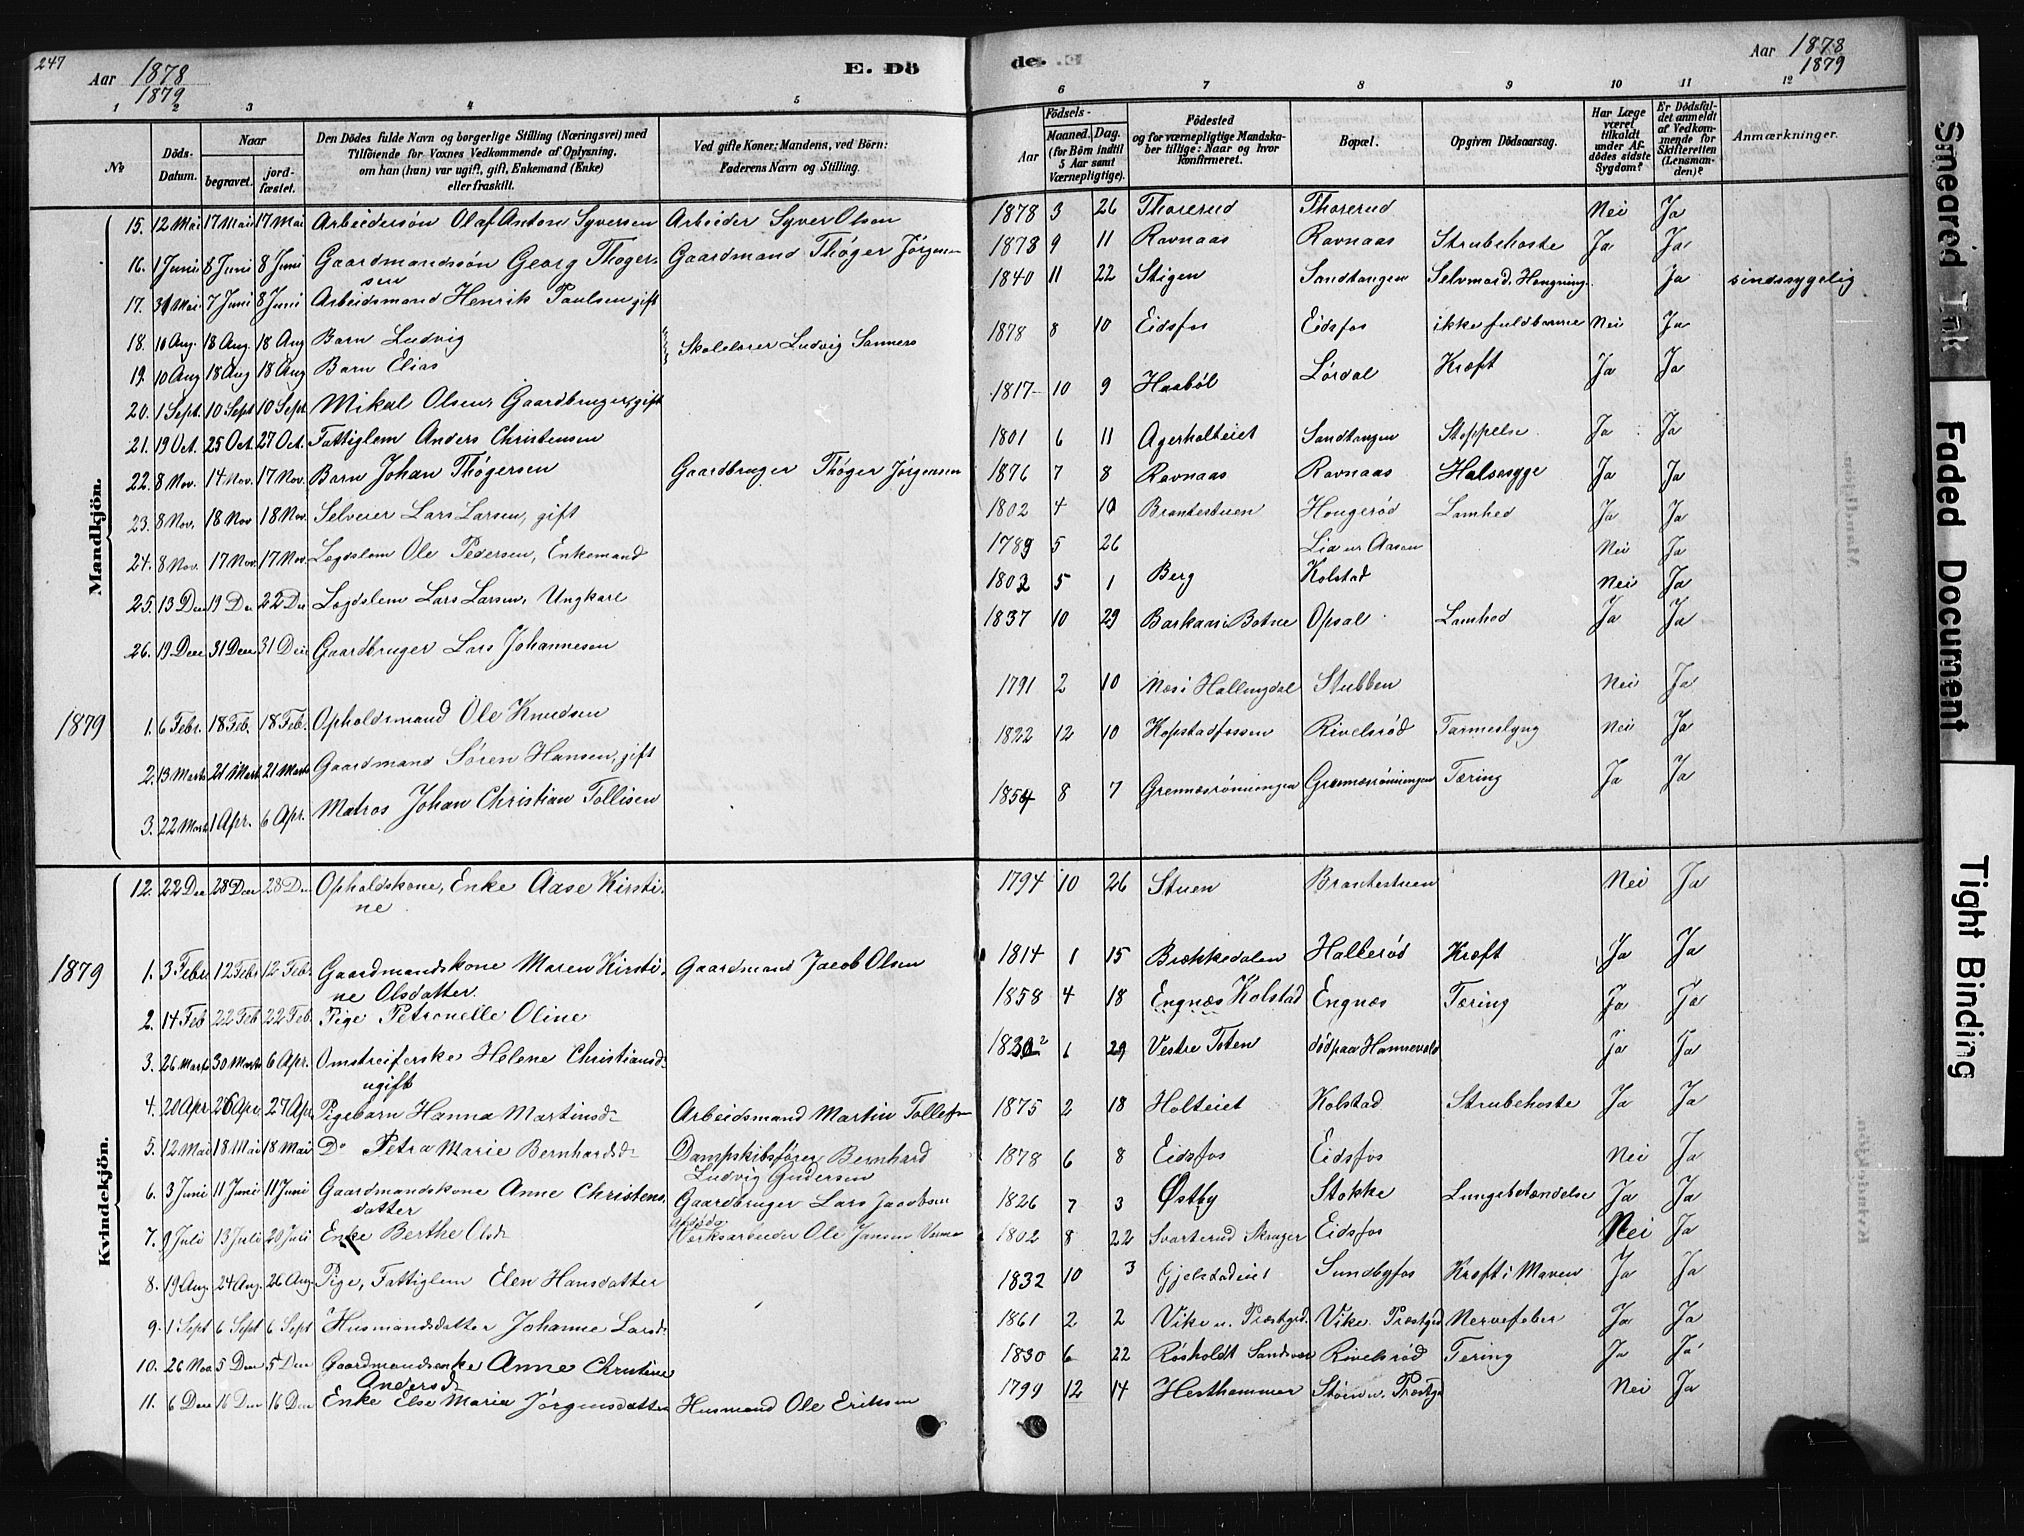 247
Aar 1878
1879
E. Dö
de.
Aar 1878
1879
1 2 3 4 5
6 7 8 9 10 11 12
No
Döds-Datum.
Naar
begravet.
jord-fæstet.
Den Dödes fulde Navn og borgerlige Stilling (Næringsvei) med
Tilföiende for Voxnes Vedkommende af Oplysning,
om han (hun) var ugift, gift, Enkemand (Enke)
eller fraskilt.
Ved gifte Koner: Mandens, ved Börn:
Faderens Navn og Stilling.
Födsels-
Aar
Maaned. Dag.
(for Börn indtil
5 Aar samt
Værnepligtige).
Födested
og for værnepligtige Mandska-
ber tillige: Naar og hvor
konfirmeret.
Bopæl.
Opgiven Dödsaarsag.
Har Læge
været
tilkaldt
under Af-
dödes sidste
Sygdom?
Er Dödsfal-
det anmeldt
af Vedkom-
mende for
Skifteretten
(Lensman-
den)?
Anmærkninger.
Mandkjön.
15. 12 Mai 17 Mai 17 Mai Arbeidersøn Olaf Anton Syversen Arbeider Syver Olsen 1878 3 26 Thorerud Thorerud Nei Ja
16. 1 Juni 8 Juni 8 Juni Gaardmandssøn Georg Thøger- Gaardmand Thøger Jørgensen 1878 9 11 Ravnaas Ravnaas Strubehoste Ja Ja
sen
17. 31 Mai 7 Juni 8 Juni Arbeidsmand Henrik Paulsen gift 1840 11 22 Stigen Sandtangen Selvmord, Hængning Ja sindssygelig
18. 10 Aug. 18 Aug. 18 Aug Barn Ludvig Skolelærer Ludvig Sannes 1878 8 10 Eidsfos Eidsfos ikke fuldbaarne Nei Ja
19. 10 Aug 18 Aug 18 Aug Barn Elias
20. 1 Sept. 10 Sept 10 Sept Mikal Olsen, Gaardbruger, gift 1817 10 9 Haabøl Lørdal Kræft Ja Ja
21. 19 Oct. 25 Oct. 27 Oct. Fattiglem Anders Christensen 1801 6 11 Agerholteiet Sandtangen Stoppelse Ja Ja
22. 8 Nov. 14 Nov. 17 Nov. Barn Johan Thøgersen Gaardbruger Thøger Jørgensen 1876 7 8 Ravnaas Ravnaas Halssyge Ja Ja
23. 8 Nov. 18 Nov 18 Nov. Selveier Lars Larsen, gift 1802 4 10 Brantestuen Hougerød Lamhed Ja Ja
24. 8 Nov. 17 Nov. 17 Nov. Legdslem Ole Pedersen, Enkemand 1789 5 26 Lia u Aasen Nei Ja
25. 13 De 19 De 22 De Legdslem Lars Larsen, Ungkarl 1802 5 1 Berg Kolstad Nei Ja
26. 19 Dec 31 Dec 31 Dec Gaardbruger Lars Johannesen 1837 10 29 Baskaas i Botne Opsal Lamhed Ja Ja
1879
1. 6 Febr. 18 Feb. 18 Feb. Opholdsmand Ole Knudsen 1791 2 10 Næs i Hallingdal Stubben Nei Ja
2. 13 Marts 21 Marts 21 Marts Gaardmand Søren Hansen, gift 1822 12 10 Kopstadfossen Rivelsrød Tarmeslyng Nei Ja
3. 22 Marts 1 Apr. 6 Apr. Matros Johan Christian Tollisen 1854 8 7 Grennesrønningen Grennesrønningen Tæring Ja Ja
Kvindekjön.
12. 22 Dec 28 Dec 28 Dec Opholdskone, Enke Aase Kirsti- 1794 10 26 Stuen Brantestuen Nei Ja
ne
1879
1. 3 Febr 12 Feb 12 Feb. Gaardmandskone Maren Kirsti- Gaardmand Jacob Olsen 1814 1 15 Brækkedalen Hallerød Kræft Ja Ja
ne Olsdatter.
2. 14 Feb 22 Feb 22 Feb. Pige Petronelle Oline 1858 4 18 Engnæs Kolstad Engnæs Tæring Ja Ja
3. 26 Marts 30 Marts 6 Apr. Omstreiferske Helene Christiansd. 2 6 29 Vestre Toten død paa Hannevold Ja Ja
ugift
4. 20 Apr 26 Apr 27 Apr Pigebarn Hanna Martinsd. Arbeidsmand Martin Tollefsen 1875 2 18 Holteiet Kolstad Strubehoste Ja Ja
5. 12 Mai 18 Mai 18 Mai Do Petra Marie Bernhardsd. Dampskibsfører Bernhard 1878 6 8 Eidsfos Eidsfos Nei Ja
Ludvig Gudersen
6. 3 Juni 11 Juni 11 Juni Gaardmandskone Anne Christens Gaardbruger Lars Jacobsen 1826 7 3 Østby Stokke Lungebetændelse Ja Ja
datter
7. 9 Juli 13 Juli 20 Juli Enke Berthe Olsd. afdøde Værksarbeider Ole Jansen 1802 8 22 Svarterud Skauger Eidsfos Nei Ja
8. 19 Aug. 24 Aug. 26 Aug. Pige, Fattiglem Elen Hansdatter 1832 10 3 Gjelstadeiet Sundbyfos Kræft i Maven Ja Ja
9. 1 Sept 6 Sept 6 Sept Husmandsdatter Johanne Larsd. 1861 2 2 Vike u. Præstgrd. Vike u. Præstgrd Nervefeber Ja Ja
10. 26 Nov 5 Dec 5 Dec Gaardmandsenke Anne Christine 1830 6 22 Røsholdt Sandsvær Rivelsrød Tering Ja Ja
Andersd.
11. 6 Dec 16 Dec 16 Dec Enke Else Maria Jørgensdatter Husmand Ole Eriksen 1799 12 14 Hesthammer Støen u. Præstgd Nei Ja
Smeared Ink
Faded Document
Tight Binding